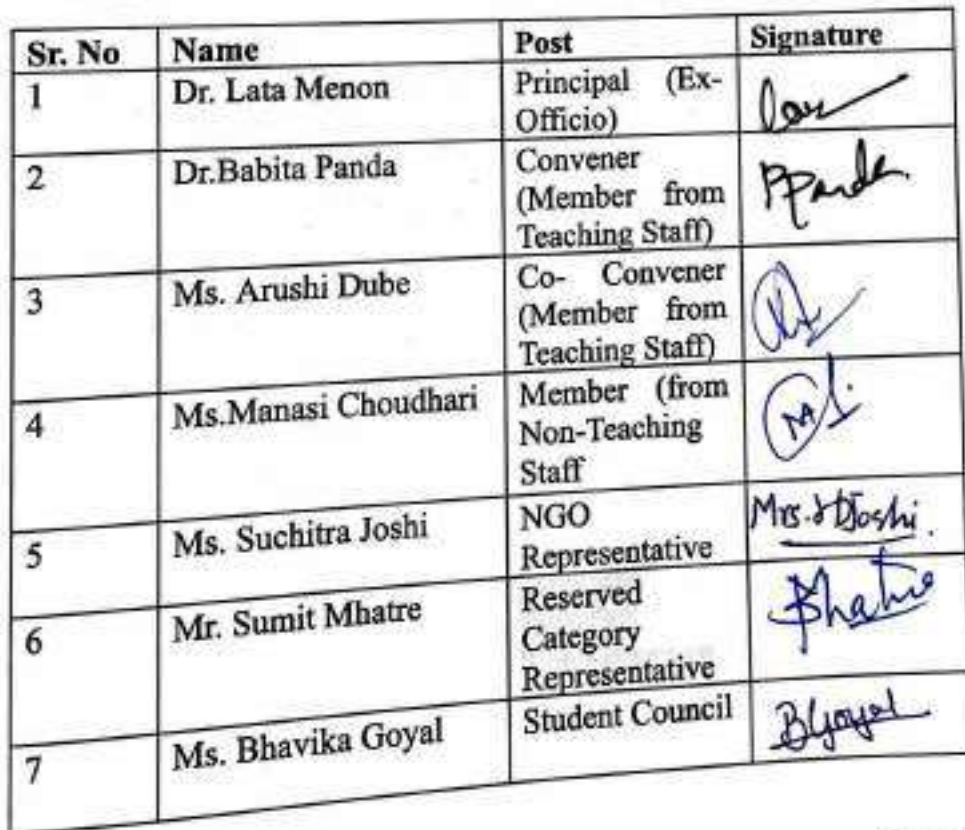 Sr. No Name Post Signature
1 Dr. Lata Menon Principal (Ex-
Officio)
2 Dr.Babita Panda Convener PPanda
(Member from
Teaching Staff)
3 Ms. Arushi Dube Co- Convener
(Member from
Teaching Staff)
4 Ms.Manasi Choudhari Member (from
Non-Teaching
Staff
5 Ms. Suchitra Joshi NGO Mrs. Joshi
Representative
6 Mr. Sumit Mhatre Reserved
Category
Representative
7 Ms. Bhavika Goyal Student Council BGoyal